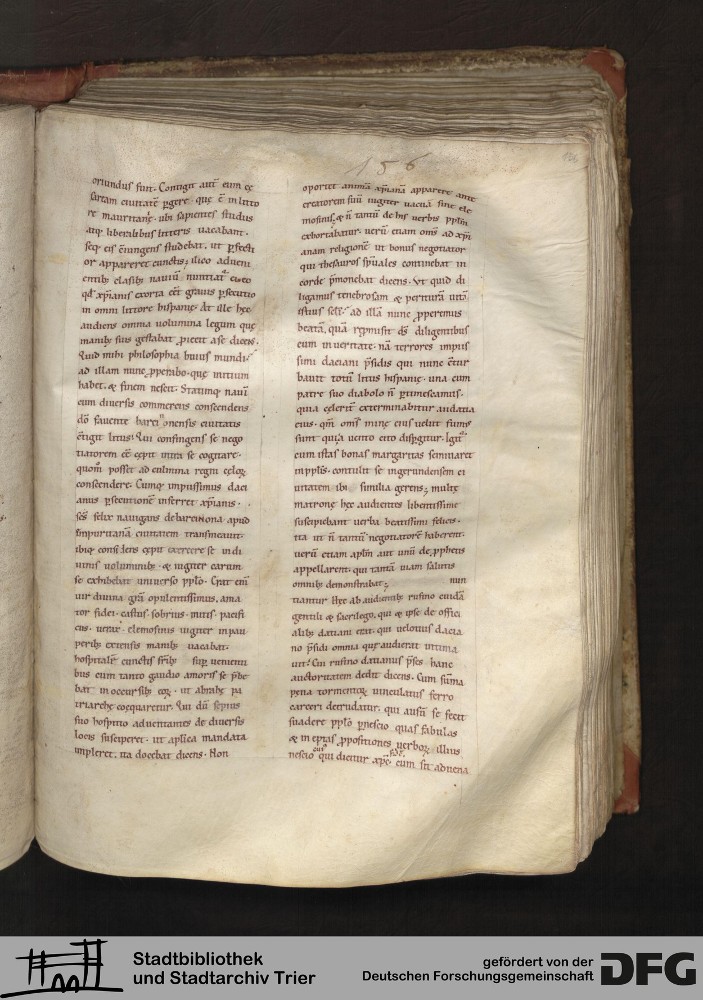 156
oriundus fuit. Contigit autē eum ce
saream ciuitatē ꝑgere. que ē in litto
re mauritanię. ubi sapientes studiis
atq; liberalibus litteris uacabant.
seq; eis c̄iungens studebat. ut ꝑfecti
or appareret cunctis; ilico adueni
entib; clasib; nauiū nuntiat
qđ xp̄ianis exorta eēt grauis ꝑsecutio
in omni littore hispanię. At ille hęc
audiens omnia uolumina legum quę
manib; suis gestabat ꝓiecit a se dicens.
Quid mihi philosophia huius mundi.
ad illam nunc ꝓperabo. quę initium
habet. & finem nescit. Statimq; nauī
cum diuersis commerciis conscendens
dō fauente barcinonensis ciuitatis
c̄tigit litus. Qui confingens se nego
tiatorem eē cępit intra se cogitare.
quom̄ posset ad culmina regni cęloꝝ
conscendere. Cumq; impiissimus daci
anus ꝑsecutionē inferret xp̄ianis.
sc̄s felix nauigans de barcinona apud
Impuritanā ciuitatem transmeauit.
ibiq; considens cępit exercere se in di
uinis uoluminib; & iugiter earum
se exhibebat uniuerso pp̄lo. Erat enī
uir diuina gr̄a opulentissimus. ama
tor fidei. castus. sobrius. mitis. pacifi
cus. uerax. elemosinis iugiter in pau
perib; extensis manib; uacabat.
hospitalē cunctis fr̄ib; suꝑ uenienti
bus cum tanto gaudio amoris se p̄be
bat in occursib; eoꝝ. ut abrahę pa
triarchę coęquaretur. Qui dū sepius
suo hospitio aduentantes de diuersis
locis susciperet. ut aplīca mandata
impleret. ita docebat dicens. Non
oportet animā xp̄ianā apparere ante
creatorem suū iugiter uacuā sine ele
mosinis. & n̄ tantū de his uerbis pp̄lm̄
exhortabatur. uerū etiam om̄s ad xp̄i
anam religionē ut bonus negotiator
qui thesauros sp̄uales continebat in
corde p̄monebat dicens. Vt quid di
ligamus tenebrosam & periturā uitā
istius sclī. ad illā nunc ꝓperemus
beatā. quā reꝓmisit dś diligentibus
eum in ueritate. nā terrores impiis
simi daciani p̄sidis qui nunc c̄tur
bauit totū litus hispanię. una cum
patre suo diabolo n̄ ꝑtimescamus.
quia celerit̄ exterminabitur audatia
eius. qm̄ om̄s minę eius uelut fumꝰ
sunt qui a uento cito dispgitur. Igit̄
cum istas bonas margaritas seminaret
in pp̄lis. contulit se in gerundensem ci
uitatem ibi similia gerens; multę
matronę hęc audientes libentissime
suscipiebant uerba beatissimi felicis.
ita ut n̄ tantū negotiatorē haberent.
uerū etiam aplm̄ aut unū de ꝓphetis
appellarent. qui tantā uiam salutis
omnib; demonstrabat; nun
tiantur hęc ab audientib; rufino cuidā
gentili & sacrilego. qui & ipse de offici
alib; datiani erat. qui uelotius dacia
no p̄sidi omnia quę audierat intima
uit. Cui rufino datianus p̄ses hanc
auctoritatem dedit dicens. Cum sūma
pęna tormentoꝝ uinculatus ferro
carceri detrudatur. qui ausū se fecit
suadere pp̄lo p̄nescio quas fabulas
& ineptas ꝓpositiones uerboꝝ illius
nescio cuiꝰ qui dicitur xp̄c. cum sit aduena
Stadtbibliothek
und Stadtarchiv Trier
gefördert von der
Deutschen Forschungsgemeinschaft
DFG